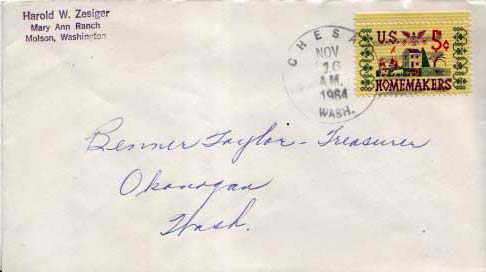 Harold W. Zesiger
Mary Ann Ranch
Molson, Washington
CHESA
NOV
16
A.M.
1964
WASH.
U.S. 5¢
HOMEMAKERS
Benner Taylor - Treasurer
Okanogan
Wash.